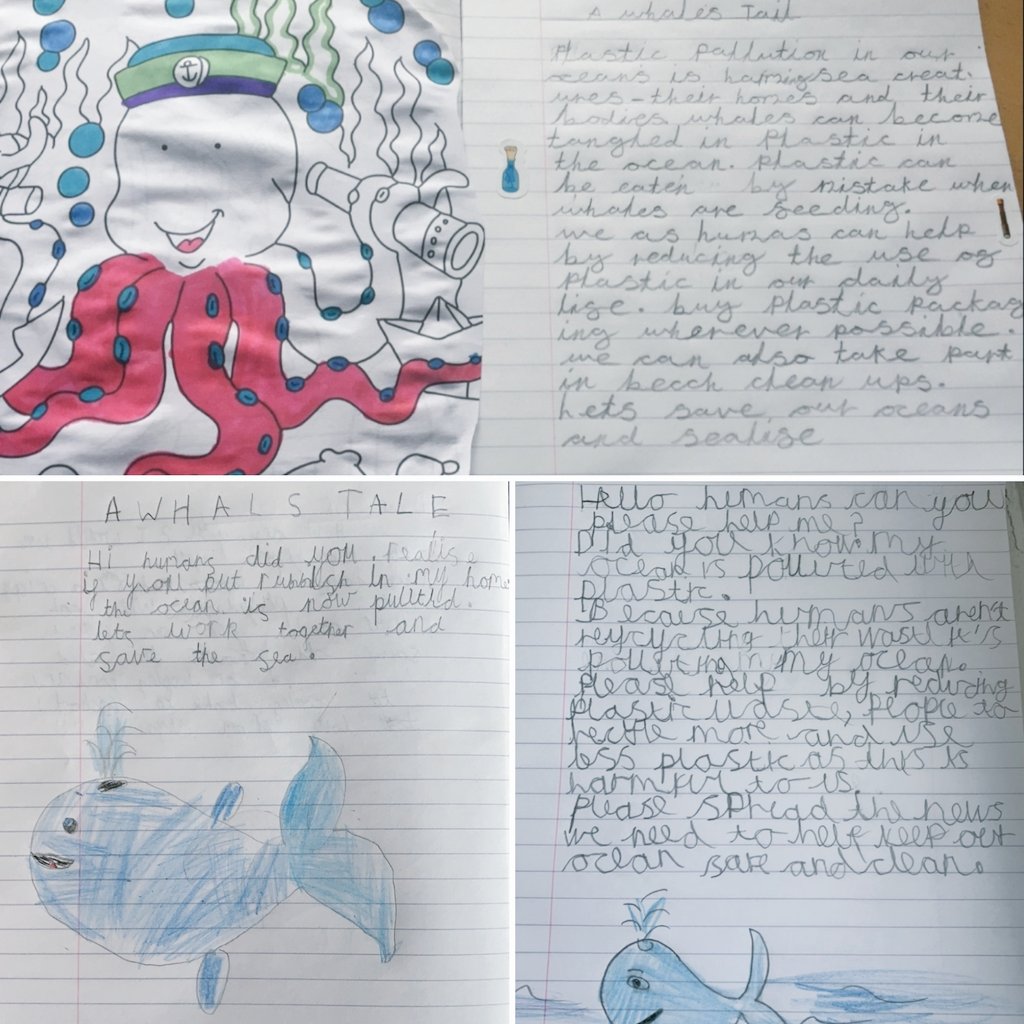 A whales Tail
Plastic Pallution in our
oceans is hamigsea creat.
ures - their homes and their
bodies whales can become
tangled in Plastic in
the ocean. Plastic can
be eaten by mistake when
whales are seeding.
we as humas can help
by reducing the use og
Plastic in our daily
lise. buy Plastic Packag
ing wherever possible.
we can also take part
in becch clean ups.
Lets save our oceans
and sealise
A WHALS TALE
Hi humans did you realise
if you put rubbish in my home
the ocean is now pullted.
lets work together and
save the sea.
Hello humans can you
please help me?
Did you know my
ocean is polluted with
plastic.
Because humans aren't
reycycling their waste it's
polluting in my ocean.
Please help by reducing
plastic waste, people to
recycle more and use
less plastic as this is
harmful to us.
please spread the news
we need to help keep our
ocean safe and clean.